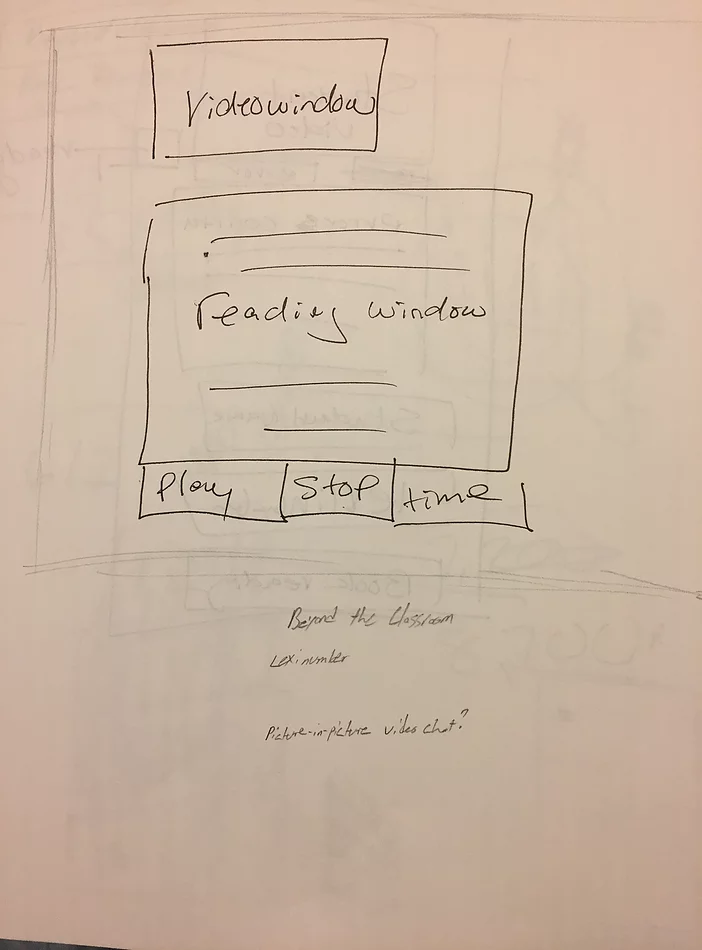 Videowindow
reading window
Play
Stop
time
Beyond the Classroom
Lexinumber
Picture-in-picture video chat?